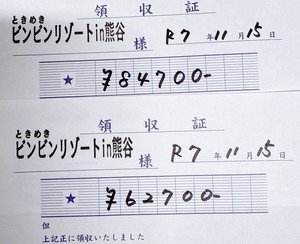 領収証
ときめき
ピンピンリゾートin熊谷 様 R7年11月15日
★ ¥84700-
領収証
ときめき
ピンピンリゾートin熊谷 様 R7年11月15日
★ ¥62700-
但
上記正に領収いたしました